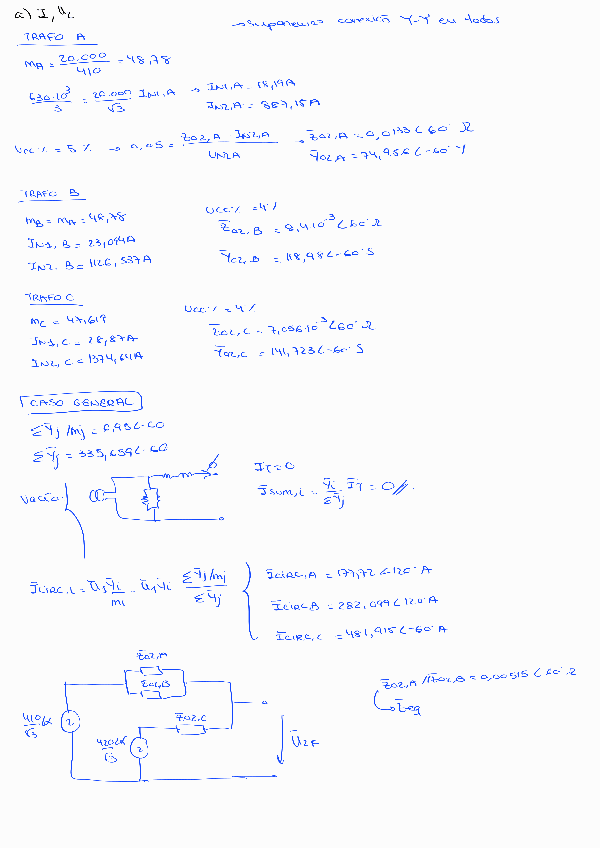 a) I, U2
→ Suponemos conexión Y-Y en todos
TRAFO A
mA = 20.000 / 410 = 48,78
630·10³ / 3 = 20.000 / √3 IN1,A → IN1,A = 18,19A
IN2,A = 887,15A
Vcc% = 5% → 0,05 = Z02,A IN2,A / UN2A → Z̄02,A = 0,0133∠60° Ω
Ȳ02,A = 74,956∠-60° V
TRAFO B
mB = mA = 48,78
IN1,B = 23,094A
IN2,B = 1126,537A
Ucc% = 4%
Z̄02,B = 8,4·10⁻³∠60° Ω
Ȳ02,B = 118,98∠-60° S
TRAFO C
mC = 47,619
IN1,C = 28,87A
IN2,C = 1374,64A
Ucc% = 4%
Z̄02,C = 7,056·10⁻³∠60° Ω
Ȳ02,C = 141,723∠-60° S
CASO GENERAL
ΣȲj/mj = 6,95∠-60
ΣȲj = 335,659∠-60
Vacío
IT = 0
Īsum,i = Ȳi / ΣȲj ĪT = 0 //
Īcirc,i = Ū1Ȳi / mi - Ū1Ȳi ΣȲj/mj / ΣȲj
Īcirc,A = 177,72∠120° A
Īcirc,B = 282,099∠120° A
Īcirc,C = 481,915∠-60° A
Z02,A
Z02,B
Z̄02,C
410 / √3
420 / √3
Ū2F
Z̄02,A // Z̄02,B = 0,00515∠60° Ω
→ Z̄eq